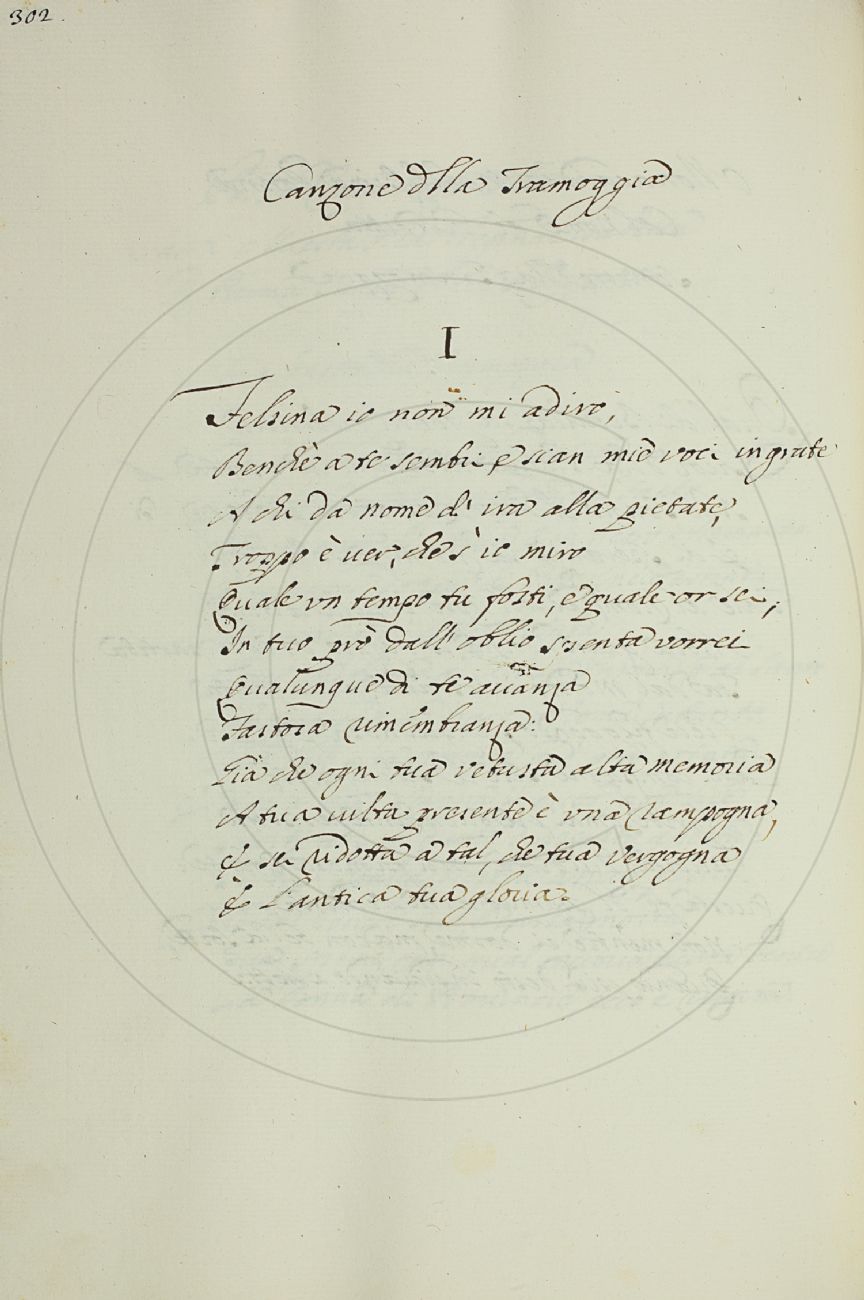 302.
Canzone dlla Tramoggia
I
Felsina io non mi adiro,
Benchè a te sembri e sian mie voci ingrate
A chi dà nome di ira alla pietate,
Troppo è ver, che s' io miro
Quale vn tempo tu fosti, e quale or sei,
In tuo prò dall' oblio spenta vorrei
Qualunque di te auanza
Fastosa rimembranza:
Già che ogni tua vetusta alta memoria
A tua viltà presente è vna rampogna,
E sei ridotta a tal, che tua vergogna
È l'antica tua gloria.